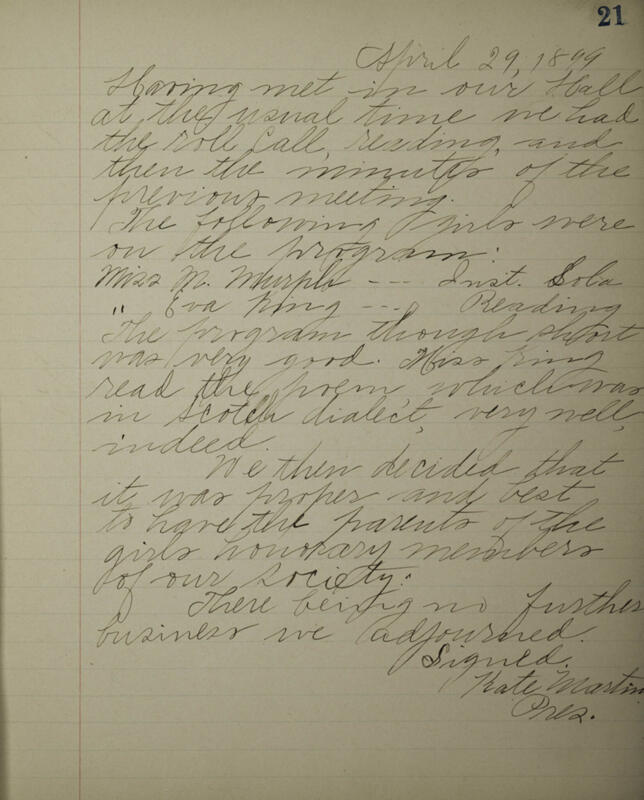 21
April 29, 1899
Having met in our Hall
at the usual time we had
the roll Call, reading, and
then the minutes of the
previous meeting.
The following girls were
on the program:
Miss M. Murph --- Inst. Solo
" Eva King --- Reading
The program though short
was very good. Miss King
read the poem, which was
in Scotch dialect, very well,
indeed.
We then decided that
it was proper and best
to have the parents of the
girls honorary members
of our society.
There being no further
business we adjourned.
Signed.
Kate Martin
Pres.